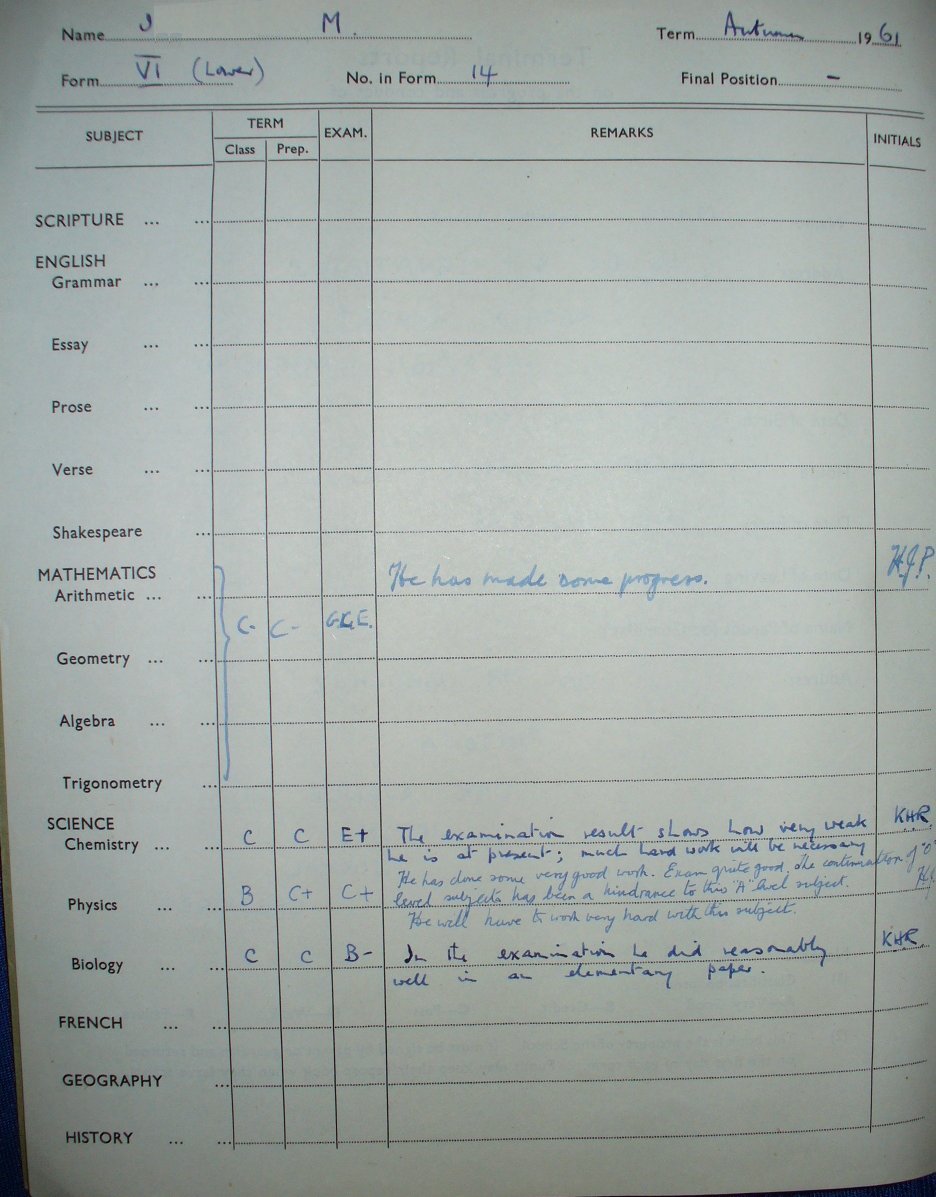 Name J M.
Term Autumn 1961
Form VI (Lower)
No. in Form 14
Final Position –
SUBJECT TERM EXAM. REMARKS INITIALS
Class Prep.
SCRIPTURE ... ...
ENGLISH
Grammar ... ...
Essay ... ...
Prose ... ...
Verse ... ...
Shakespeare ...
MATHEMATICS He has made some progress. H.J.P.
Arithmetic ... ...
C- C- G.C.E.
Geometry ... ...
Algebra ... ...
Trigonometry ...
SCIENCE
Chemistry ... ... C C E+ The examination result shows how very weak KHR.
he is at present; much hard work will be necessary
He has done some very good work. Exam quite good, the continuation of "O"
Physics ... ... B C+ C+ level subjects has been a hindrance to this "A" level subject.
He will have to work very hard with this subject.
Biology ... ... C C B- In the examination he did reasonably KHR.
well in an elementary paper.
FRENCH ... ...
GEOGRAPHY ...
HISTORY ... ...